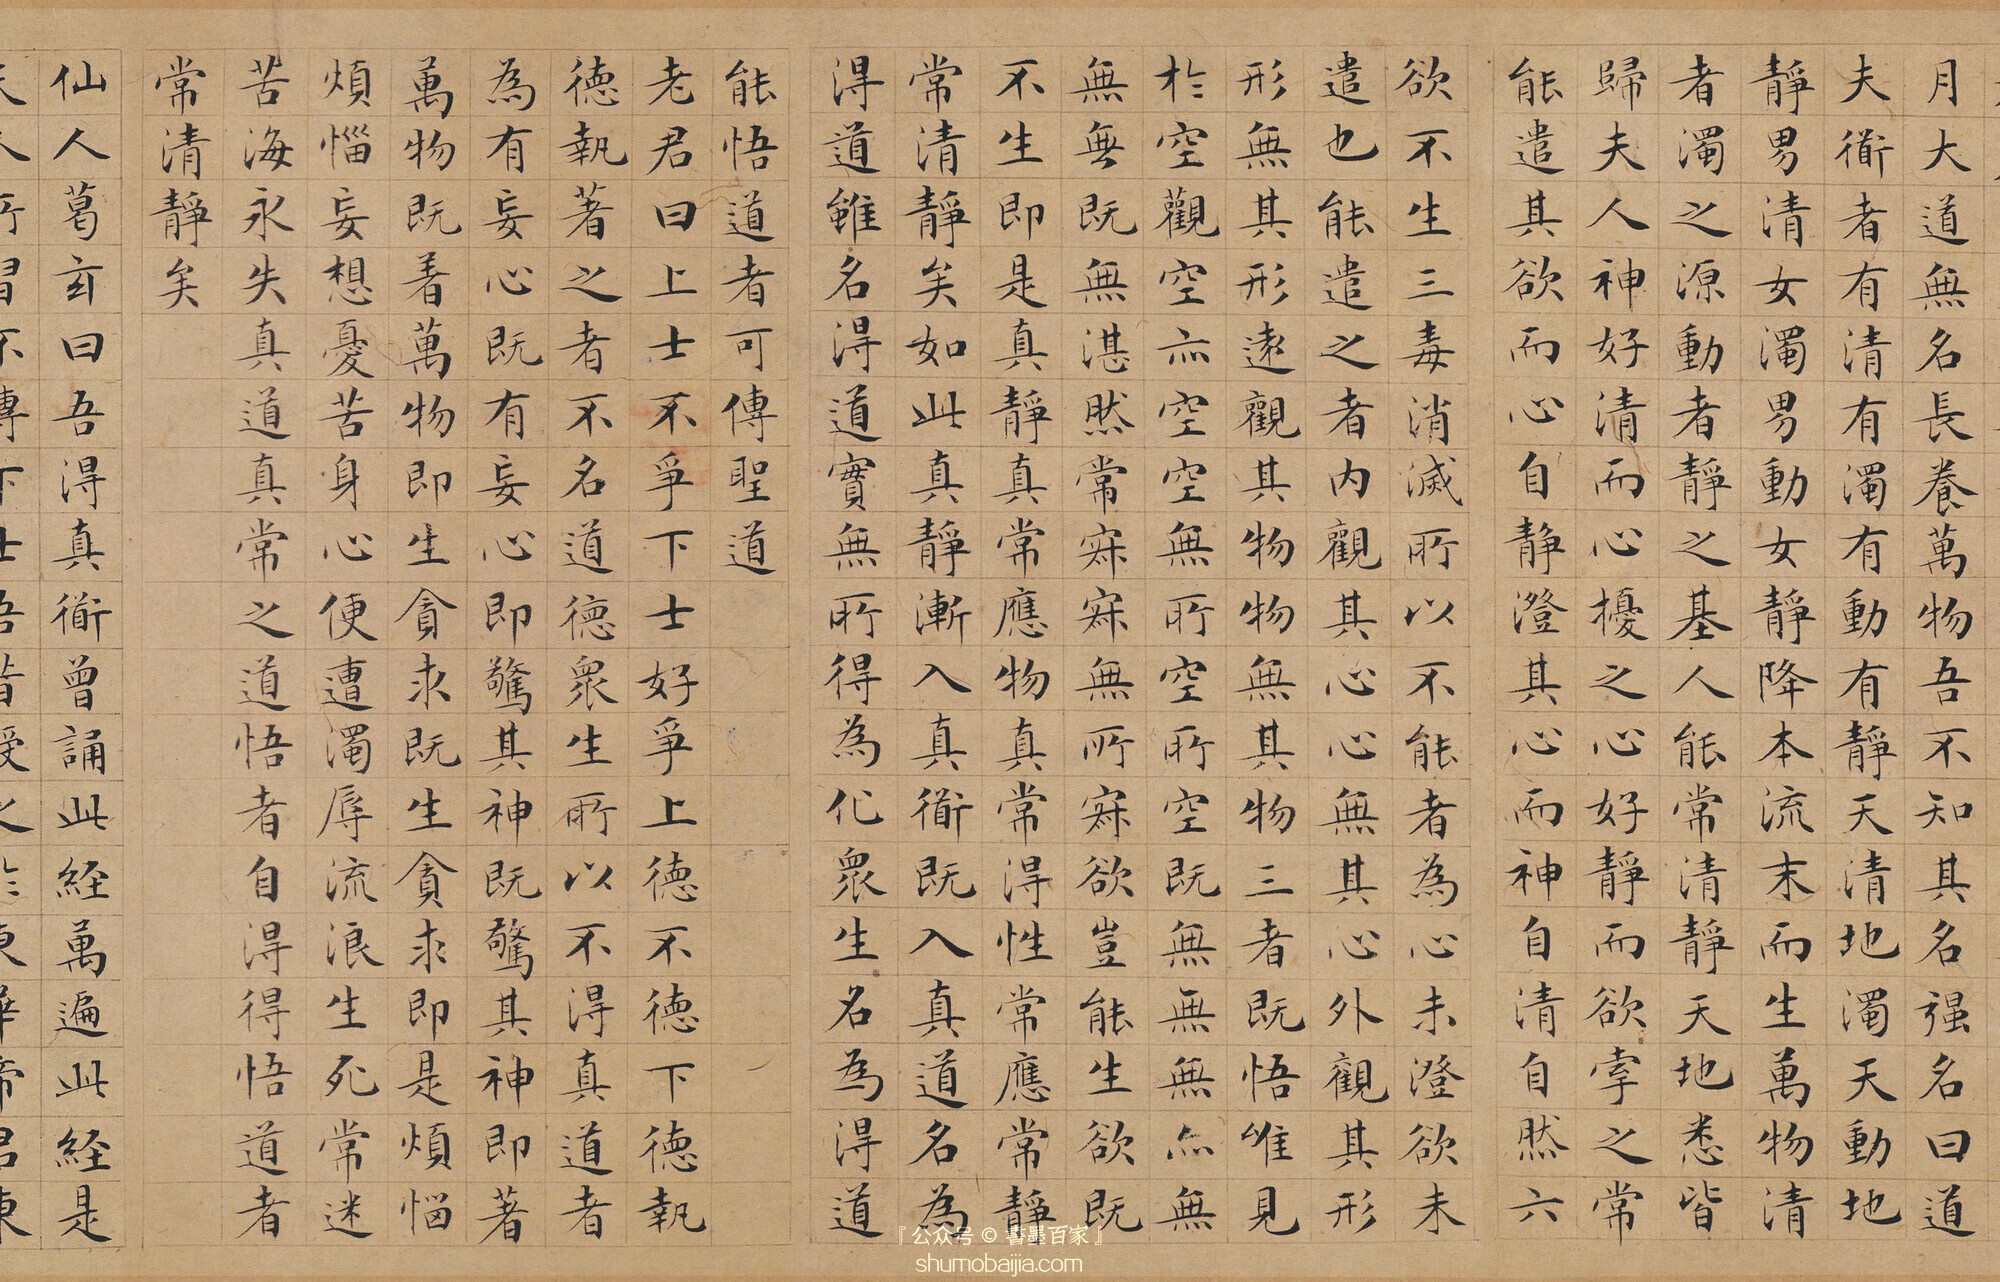 月大道無名長養萬物吾不知其名强名曰道
夫衜者有清有濁有動有靜天清地濁天動地
靜男清女濁男動女靜降本流末而生萬物清
者濁之源動者靜之基人能常清靜天地悉皆
歸夫人神好清而心擾之心好靜而欲牽之常
能遣其欲而心自静澄其心而神自清自然六
欲不生三毒消滅所以不能者為心未澄欲未
遣也能遣之者內觀其心心無其心外觀其形
形無其形遠觀其物物無其物三者既悟唯見
於空觀空亦空空無所空所空既無無無亦無
無無既無湛然常寂寂無所寂欲豈能生欲既
不生即是真靜真常應物真常得性常應常靜
常清靜矣如此真靜漸入真衜既入真道名為
得道雖名得道實無所得為化衆生名為得道
能悟道者可傳聖道
老君曰上士不爭下士好爭上德不德下德執
德執著之者不名道德衆生所以不得真道者
為有妄心既有妄心即驚其神既驚其神即著
萬物既着萬物即生貪求既生貪求即是煩惱
煩惱妄想憂苦身心便遭濁辱流浪生死常迷
苦海永失真道真常之道悟者自得得悟道者
常清靜矣
仙人葛玄曰吾得真衜曾誦此経萬遍此経是
天人所習不傳下士吾昔受之於東華帝君東
『公众号 © 書墨百家』
shumobaijia.com